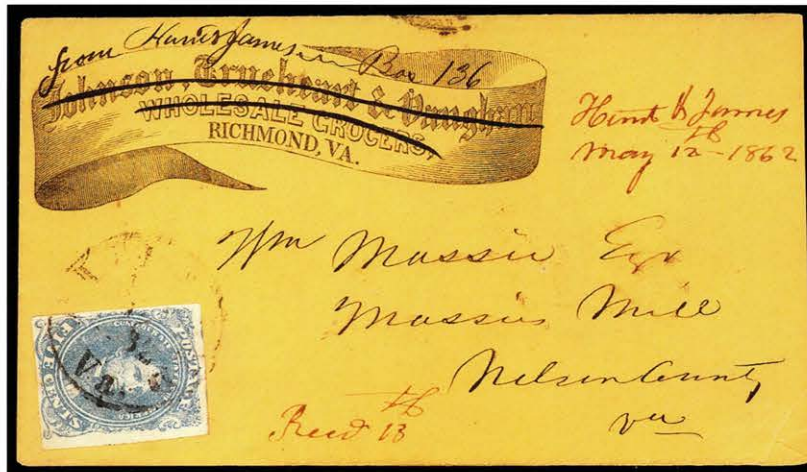 from Hunt & James Box 136
Johnson, Trueheart & Vaughan
WHOLESALE GROCERS,
RICHMOND, VA.
Hunt & James
May 12th 1862
Wm Massie Esqr
Massies Mill
Nelson County
Va
Recd 13th
FIVE CENTS
POSTAGE
VA.